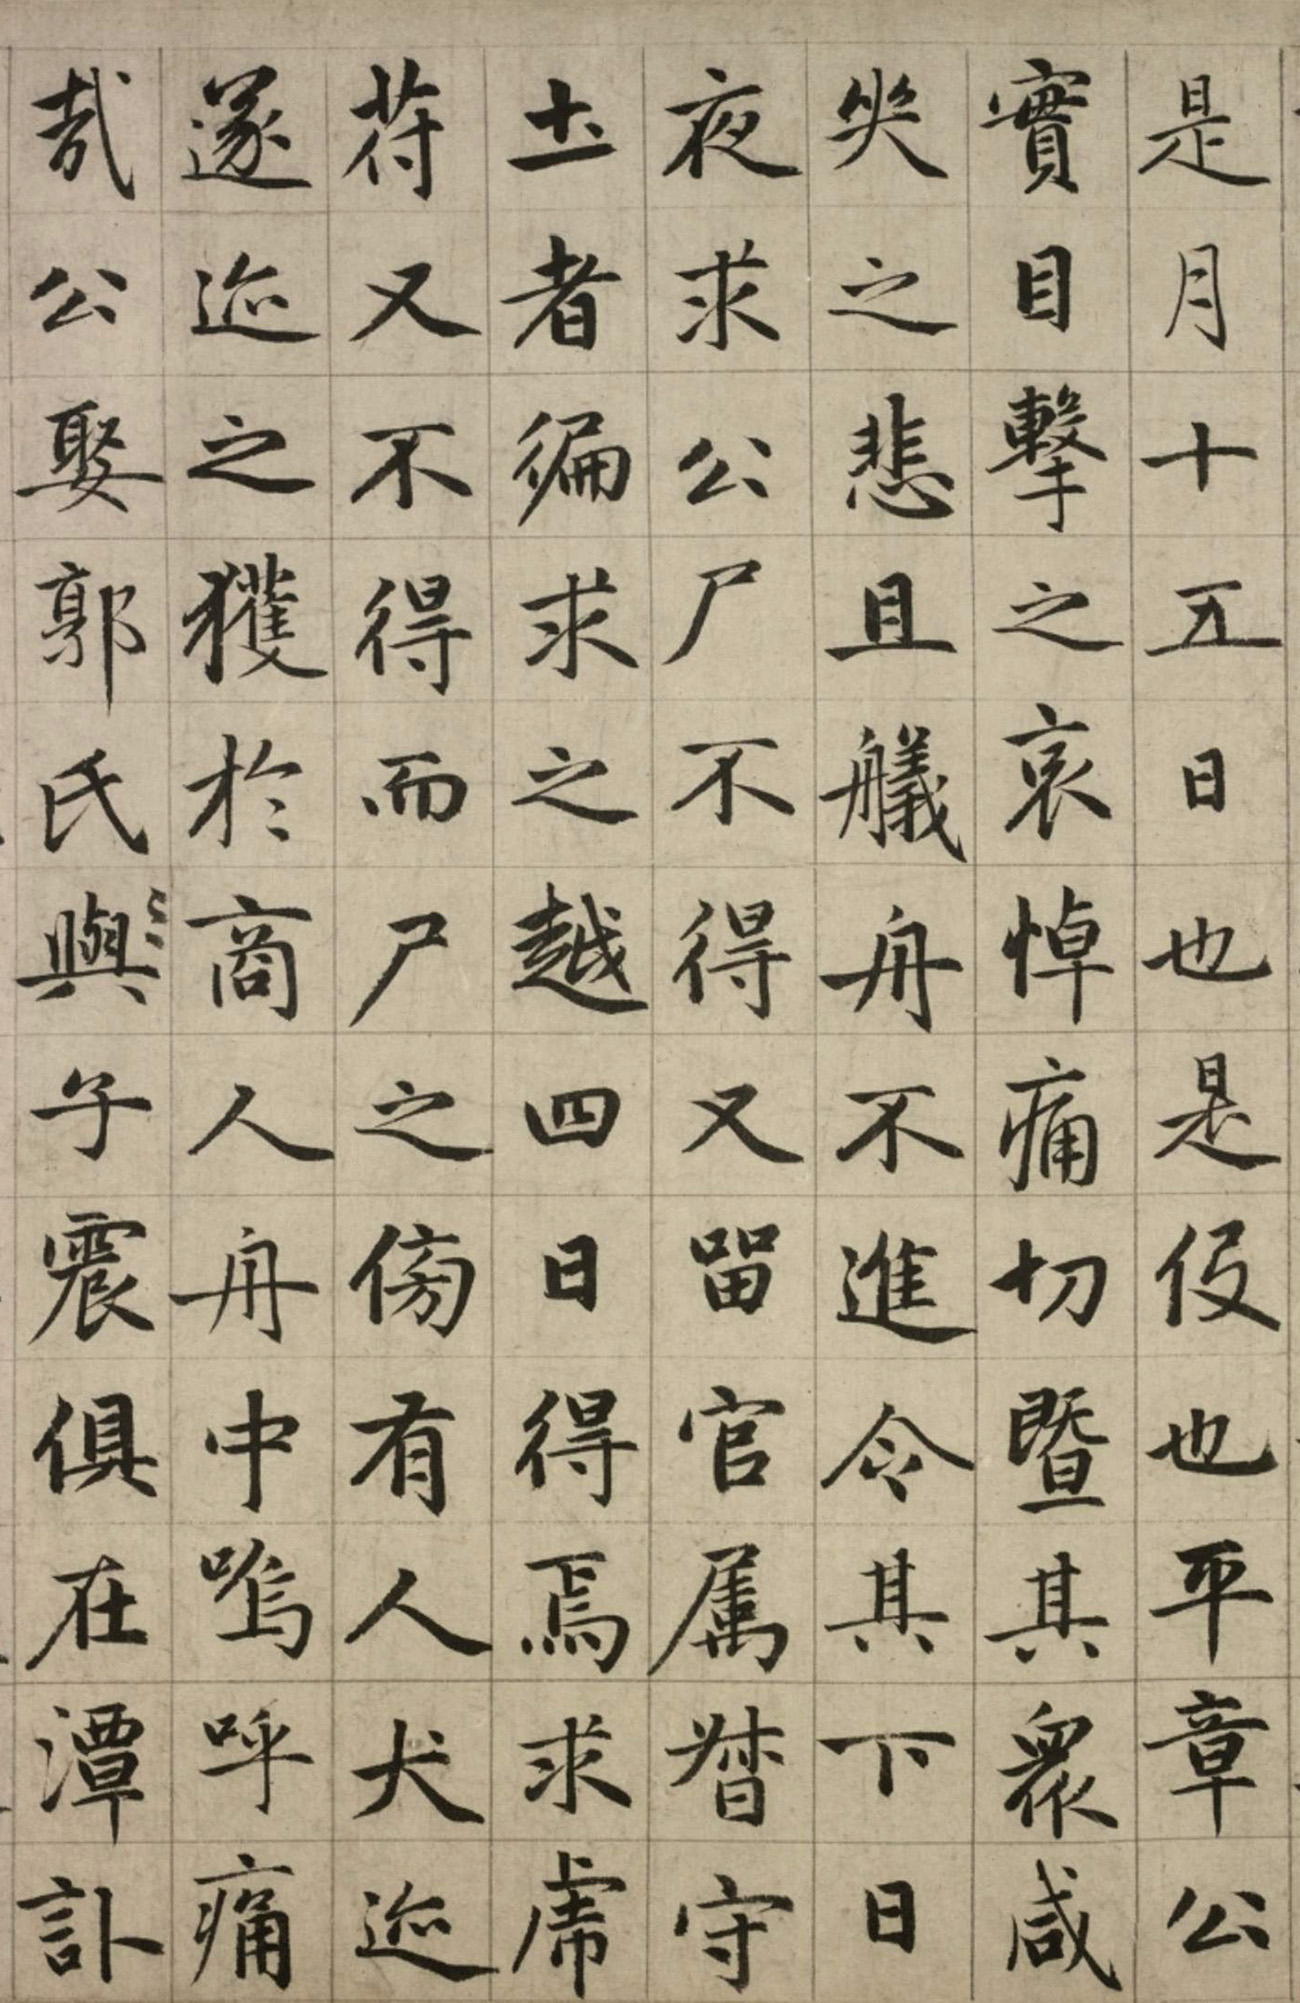 是月十五日也是伇也平章公
實目擊之哀悼痛切暨其衆咸
失之悲且艤舟不進令其下日
夜求公尸不得又留官属督守
圡者徧求之越四日得焉求虎
苻又不得而尸之傍有人犬迹
遂迹之獲於商人舟中嗚呼痛
哉公娶郭氏與子震俱在潭訃